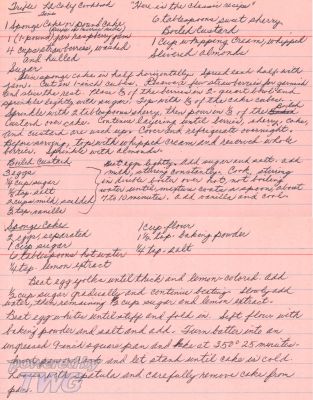 Trifle the Coby Cookbook "Here is the classic recipe"
Sponge Cake or Pound Cake 6 tablespoons sweet sherry
1 (1-pound) jar raspberry jam Boiled Custard
4 cups strawberries, washed 1 cup whipping cream, whipped
and hulled Slivered almonds
Sugar
Slice sponge cake in half horizontally. Spread each half with
jam. Cut in 1-inch cubes. Reserve strawberries for garnish
and slice the rest. Place 1/3 of the berries in 2-quart bowl and
sprinkle lightly with sugar. Top with 1/3 of the cake cubes.
Sprinkle with 2 tablespoons sherry, then pour on 1/3 of the Boiled
Custard over cake. Continue layering until berries, sherry, cake,
and custard are used up. Cover and refrigerate overnight.
Before serving, top with whipped cream and reserved whole
berries. Sprinkle with almonds.
Boiled Custard
3 eggs
1/4 cup sugar
1/4 tsp. salt
2 cups milk, scalded
1/2 tsp. vanilla
Beat eggs lightly. Add sugar and salt. Add
milk, stirring constantly. Cook, stirring
in double boiler over hot, not boiling
water until mixture coats a spoon about
7 to 10 minutes. Add vanilla and cool.
Sponge Cakes
2 eggs, separated 1 cup flour
1 cup sugar 1 1/2 tsp. baking powder
6 tablespoons hot water 1/4 tsp. salt
1/4 tsp. lemon extract
Beat egg yolks until thick and lemon-colored. Add
1/2 cup sugar gradually and continue beating. Slowly add
water, then remaining 1/2 cup sugar and lemon extract.
Beat egg whites until stiff and fold in. Sift flour with
baking powder and salt and add. Turn batter into an
ungreased 9-inch square pan and bake at 350° 25 minutes.
and let stand until cake is cold.
with spatula and carefully remove cake from
pan.
powered by
TWG